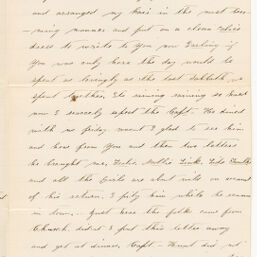 and arranged my hair in the most bec-
-oming manner and put on a clean white
dress to write to You now Darling if
You was only here the day would be
spent as lovingly as the last Sabbath we
spent together, Its raining so hard
now I scarcely expect the Capt. He dined
with us friday, wasn't I glad to see him
and hear from You and those two letters
he brought me,
and all the Girls are about wild on account
of his return. I pity him while he remains
in town, - Just here the folks came from
Church, did n't I put this letter away
and get at dinner, Capt - did not